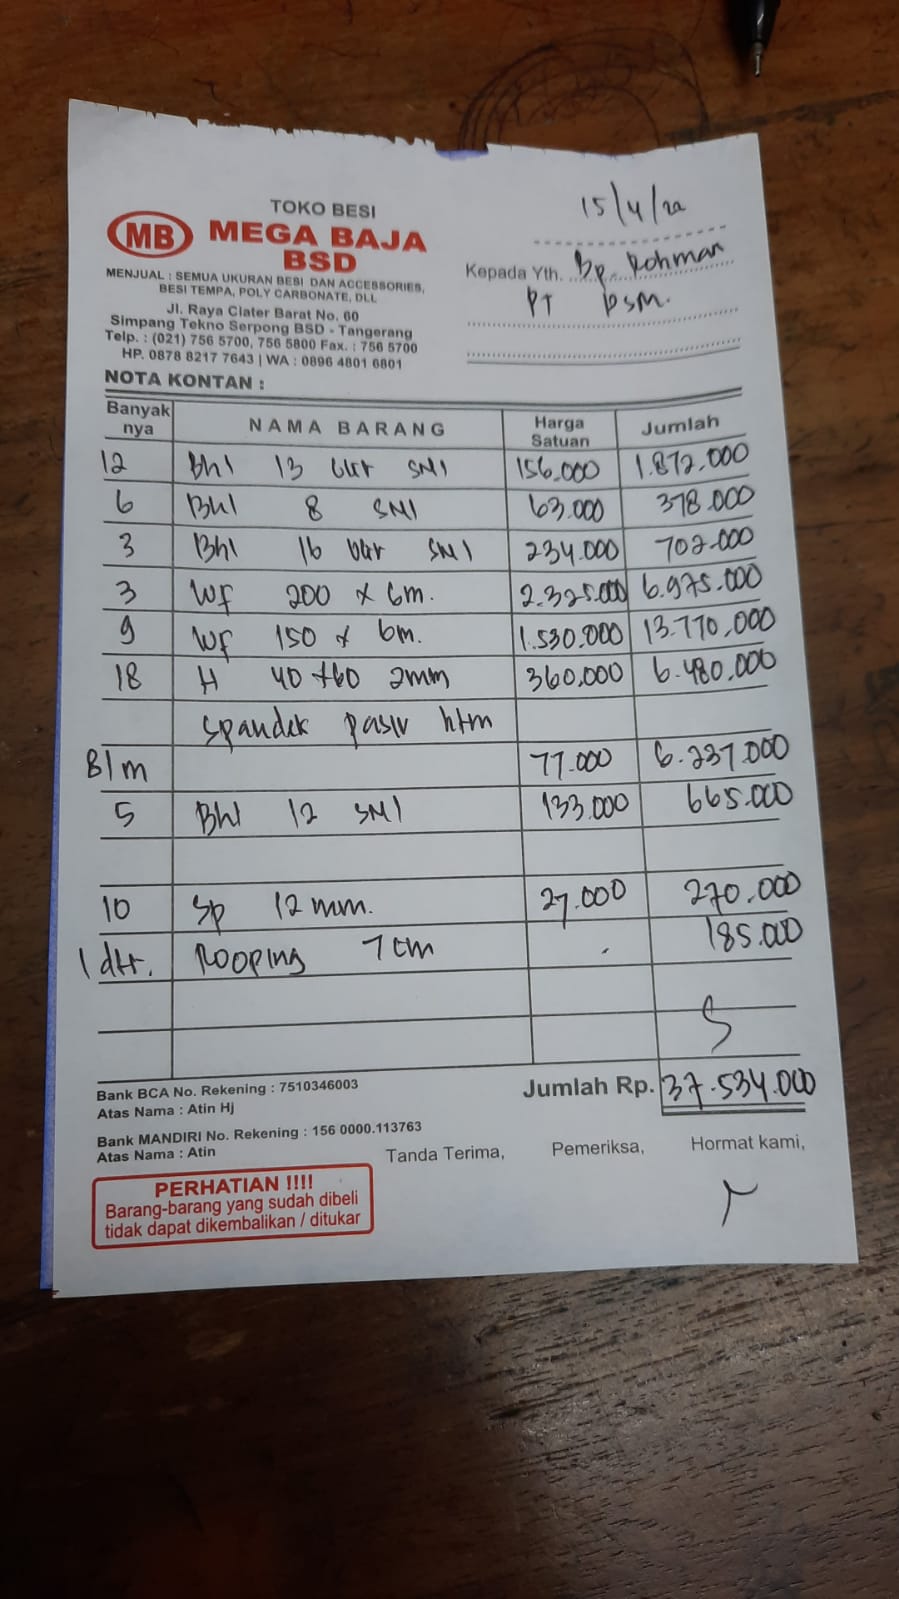 TOKO BESI
MB MEGA BAJA
BSD
MENJUAL : SEMUA UKURAN BESI DAN ACCESSORIES,
BESI TEMPA, POLY CARBONATE, DLL
Jl. Raya Ciater Barat No. 60
Simpang Tekno Serpong BSD - Tangerang
Telp. : (021) 756 5700, 756 5800 Fax. : 756 5700
HP. 0878 8217 7643 | WA : 0896 4801 6801
15/4/22
Kepada Yth. Bp. Rohman
PT DSM.
NOTA KONTAN :
Banyak nya NAMA BARANG Harga Satuan Jumlah
12 Bhl 13 Ulir SNI 156.000 1.872.000
6 Bhl 8 SNI 63.000 378.000
3 Bhl 16 Ulir SNI 234.000 702.000
3 Wf 200 x 6m. 2.325.000 6.975.000
9 Wf 150 x 6m. 1.530.000 13.770,000
18 H 40+60 2mm 360,000 6.480,000
Spandek pasir htm
81m 77.000 6.237.000
5 Bhl 12 SNI 133.000 665.000
10 Sp 12mm. 27.000 270.000
1 dtr. Rooping 7cm 185.000
Jumlah Rp. 37.534.000
Bank BCA No. Rekening : 7510346003
Atas Nama : Atin Hj
Bank MANDIRI No. Rekening : 156 0000.113763
Atas Nama : Atin
Tanda Terima, Pemeriksa, Hormat kami,
PERHATIAN !!!!
Barang-barang yang sudah dibeli
tidak dapat dikembalikan / ditukar